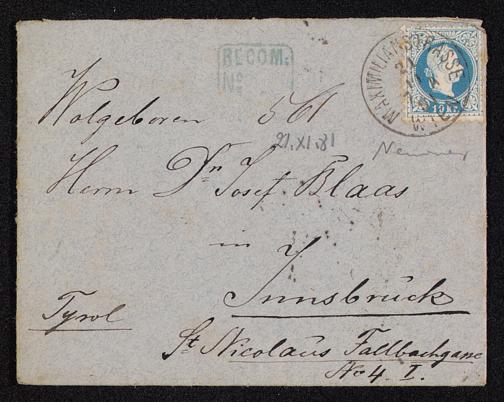 RECOM.
No.
MAXIMILIANSTRASSE
WIEN
10 Kr.
Wolgeboren 561
21.XI.81
Neumner
Herrn Dr. Josef Blaas
in
Innsbruck
Tyrol
St Nicolaus Fallbachgasse
No 4. I.